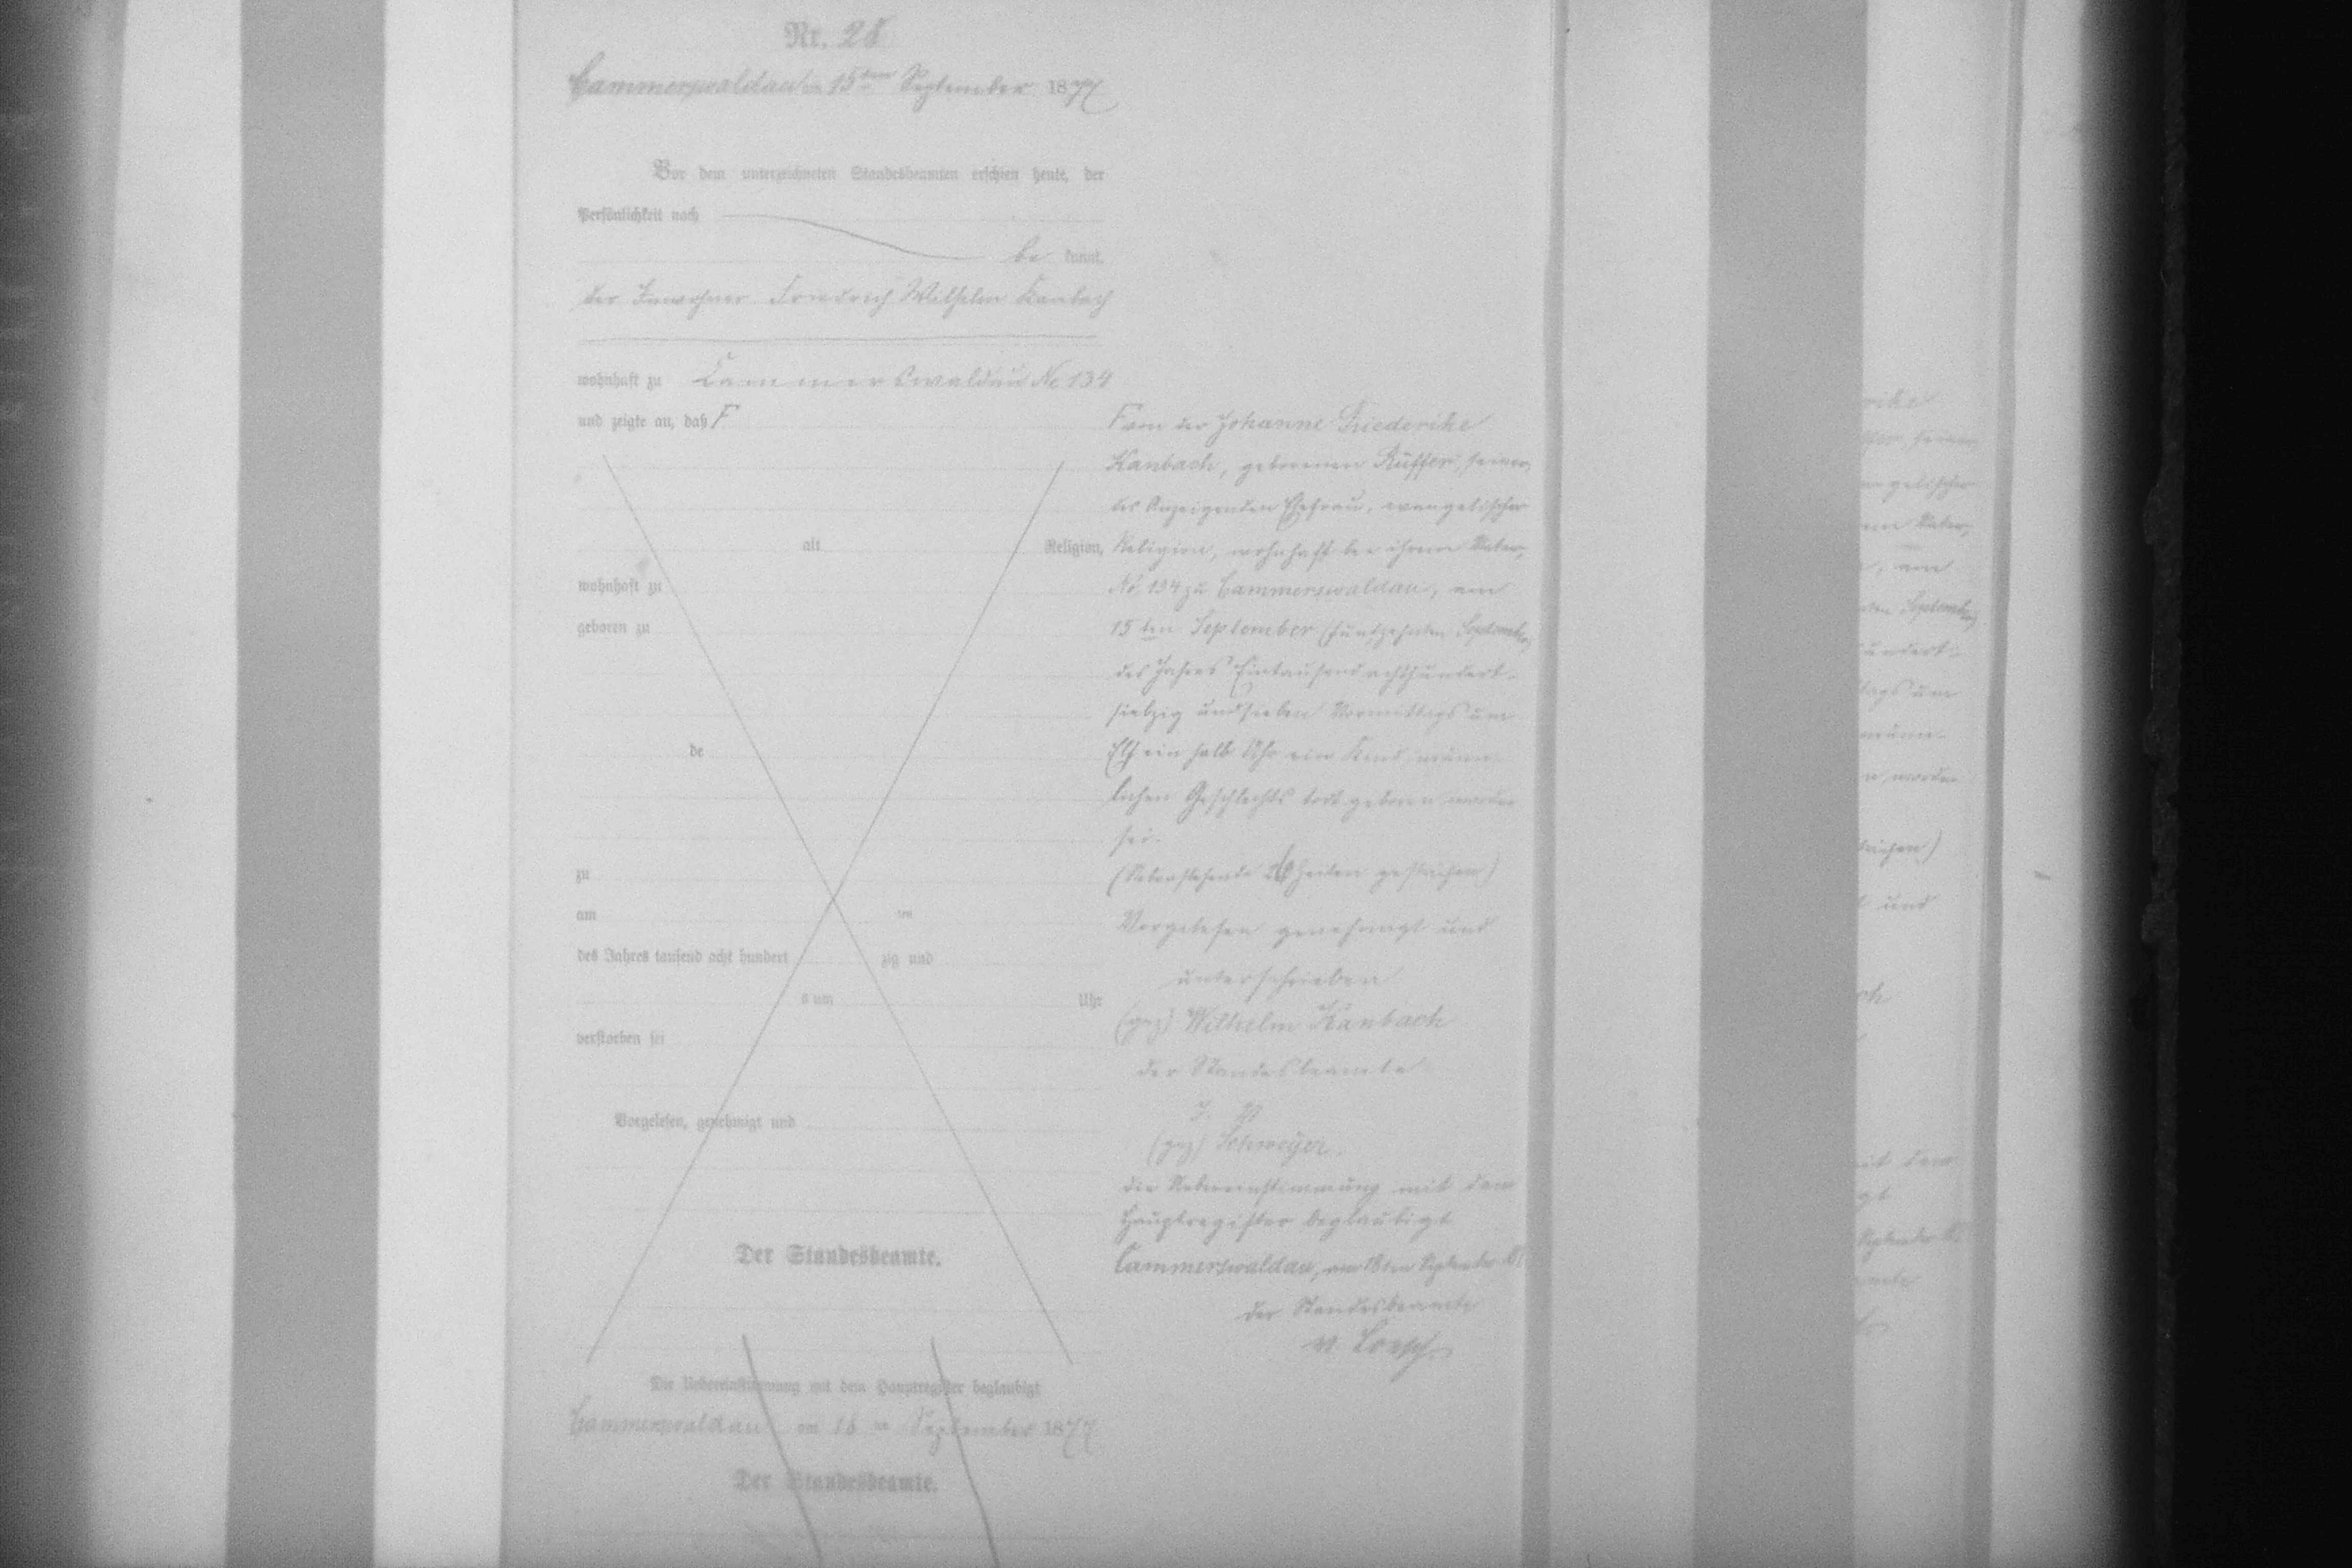 Nr. 28
Cammerswaldau am 15ten September 1877
Vor dem unterzeichneten Standesbeamten erschien heute, der
Persönlichkeit nach
be kannt,
der Inwohner Friedrich Wilhelm Kanbach
wohnhaft zu Cammerswaldau No 134
und zeigte an, daß F
alt Religion,
wohnhaft zu
geboren zu
de
zu
am ten
des Jahres tausend acht hundert zig und
s um Uhr
verstorben sei
Vorgelesen, genehmigt und
Der Standesbeamte.
Die Uebereinstimmung mit dem Hauptregister beglaubigt
Cammerswaldau am 18 ten September 1877
Der Standesbeamte.
F von der Johanne Friederike
Kanbach, geborenen Rüffer, seiner,
des Anzeigenden Ehefrau, evangelischer
Religion, wohnhaft bei ihrem
No. 134 zu Cammerswaldau, am
15 ten September (fünfzehnten September)
des Jahres Eintausend achthundert
siebzig und sieben Vormittags um
Elf ein halb Uhr ein Kind männ-
lichen Geschlechts todt geboren worden
sei.
(Nebenstehende Zeilen gestrichen)
Vorgelesen genehmigt und
unterschrieben
(gez) Wilhelm Kanbach
der Standesbeamte
J. V.
(gez) Schweyer.
die Uebereinstimmung mit dem
Hauptregister beglaubigt
Cammerswaldau, am 18ten September
Der Standesbeamte
v.